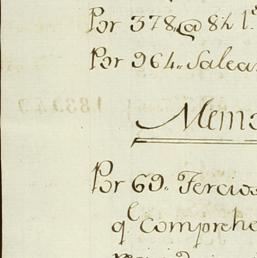 Por 378,@ 84 l.s
Por 964.. Salea
Memo
Por 69.. Tercios
q.e Comprehe